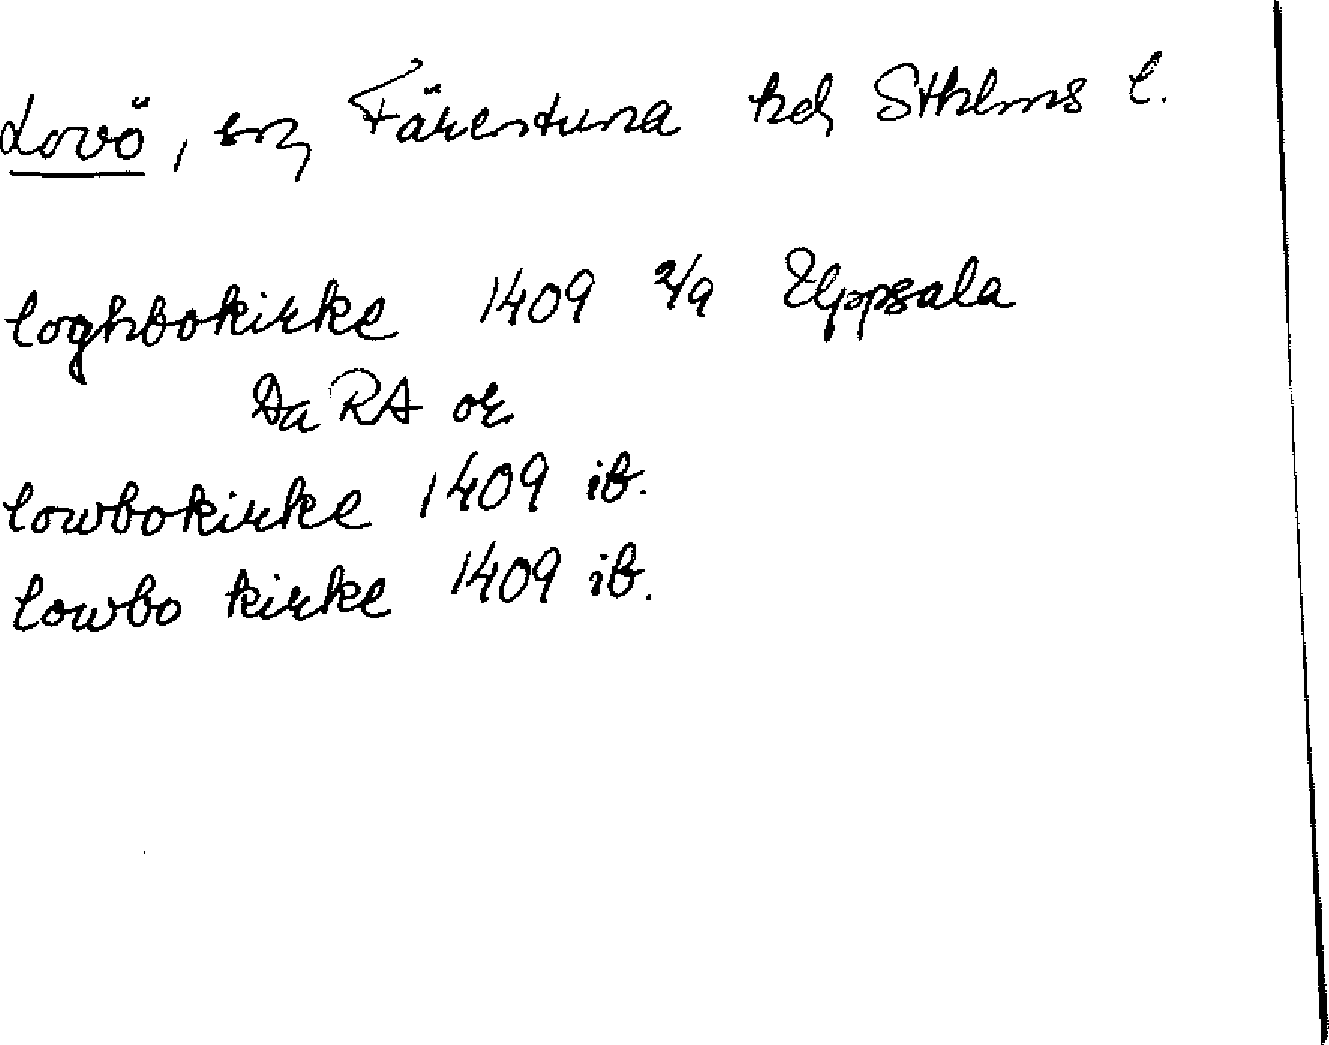 Lovö, sn, Färentuna hd, Sthlms l.
loghbokirke 1409 2/9 Uppsala
Da RA or
lowbokirke 1409 ib.
lowbo kirke 1409 ib.